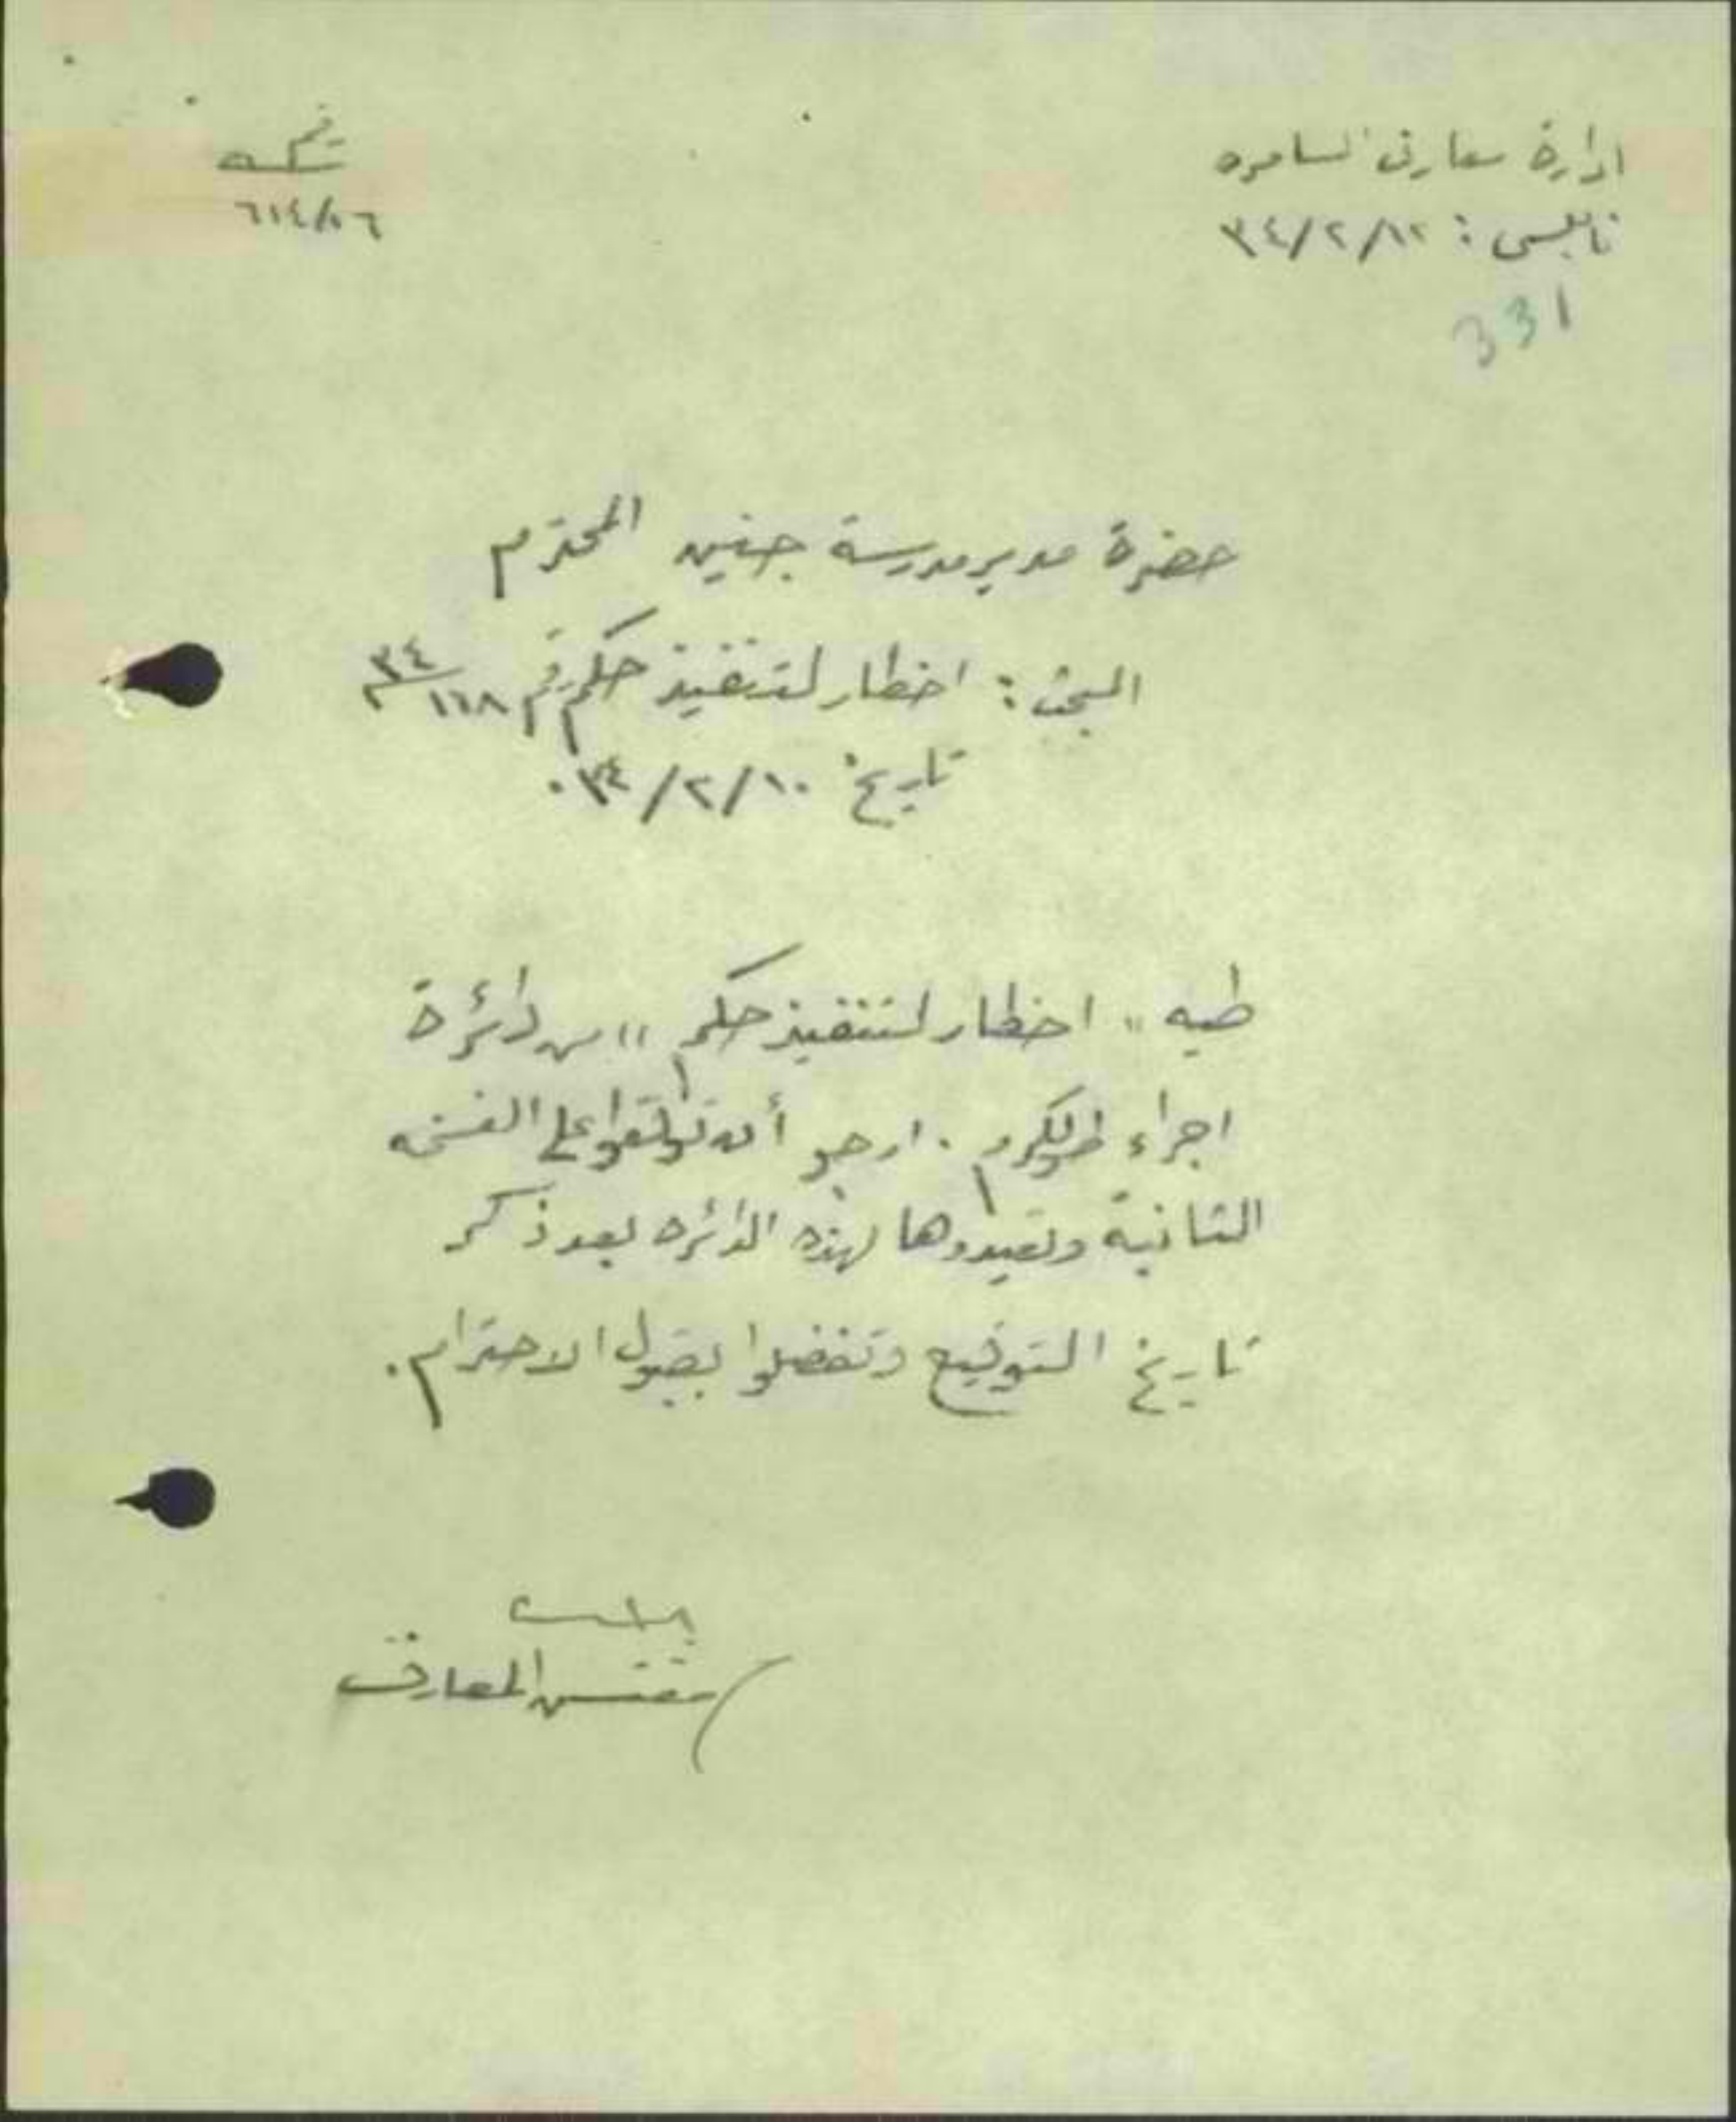 ادارة معارف السامره
رقم
نابلس : ٣٤/٢/١٢
٦١٤/١٦
331
حضرة مدير مدرسة جنين المحترم
البحث : اخطار لتنفيذ حكم رقم ١٦٨/٣٤
تاريخ ٣٤/٢/١٠ .
طيه " اخطار لتنفيذ حكم " من دائرة
اجراء طولكرم . ارجو أن توقعوا على النسخه
الثانية وتعيدوها لهذه الدائره بعد ذكر
تاريخ التوقيع وتفضلوا بقبول الاحترام .
مفتش المعارف